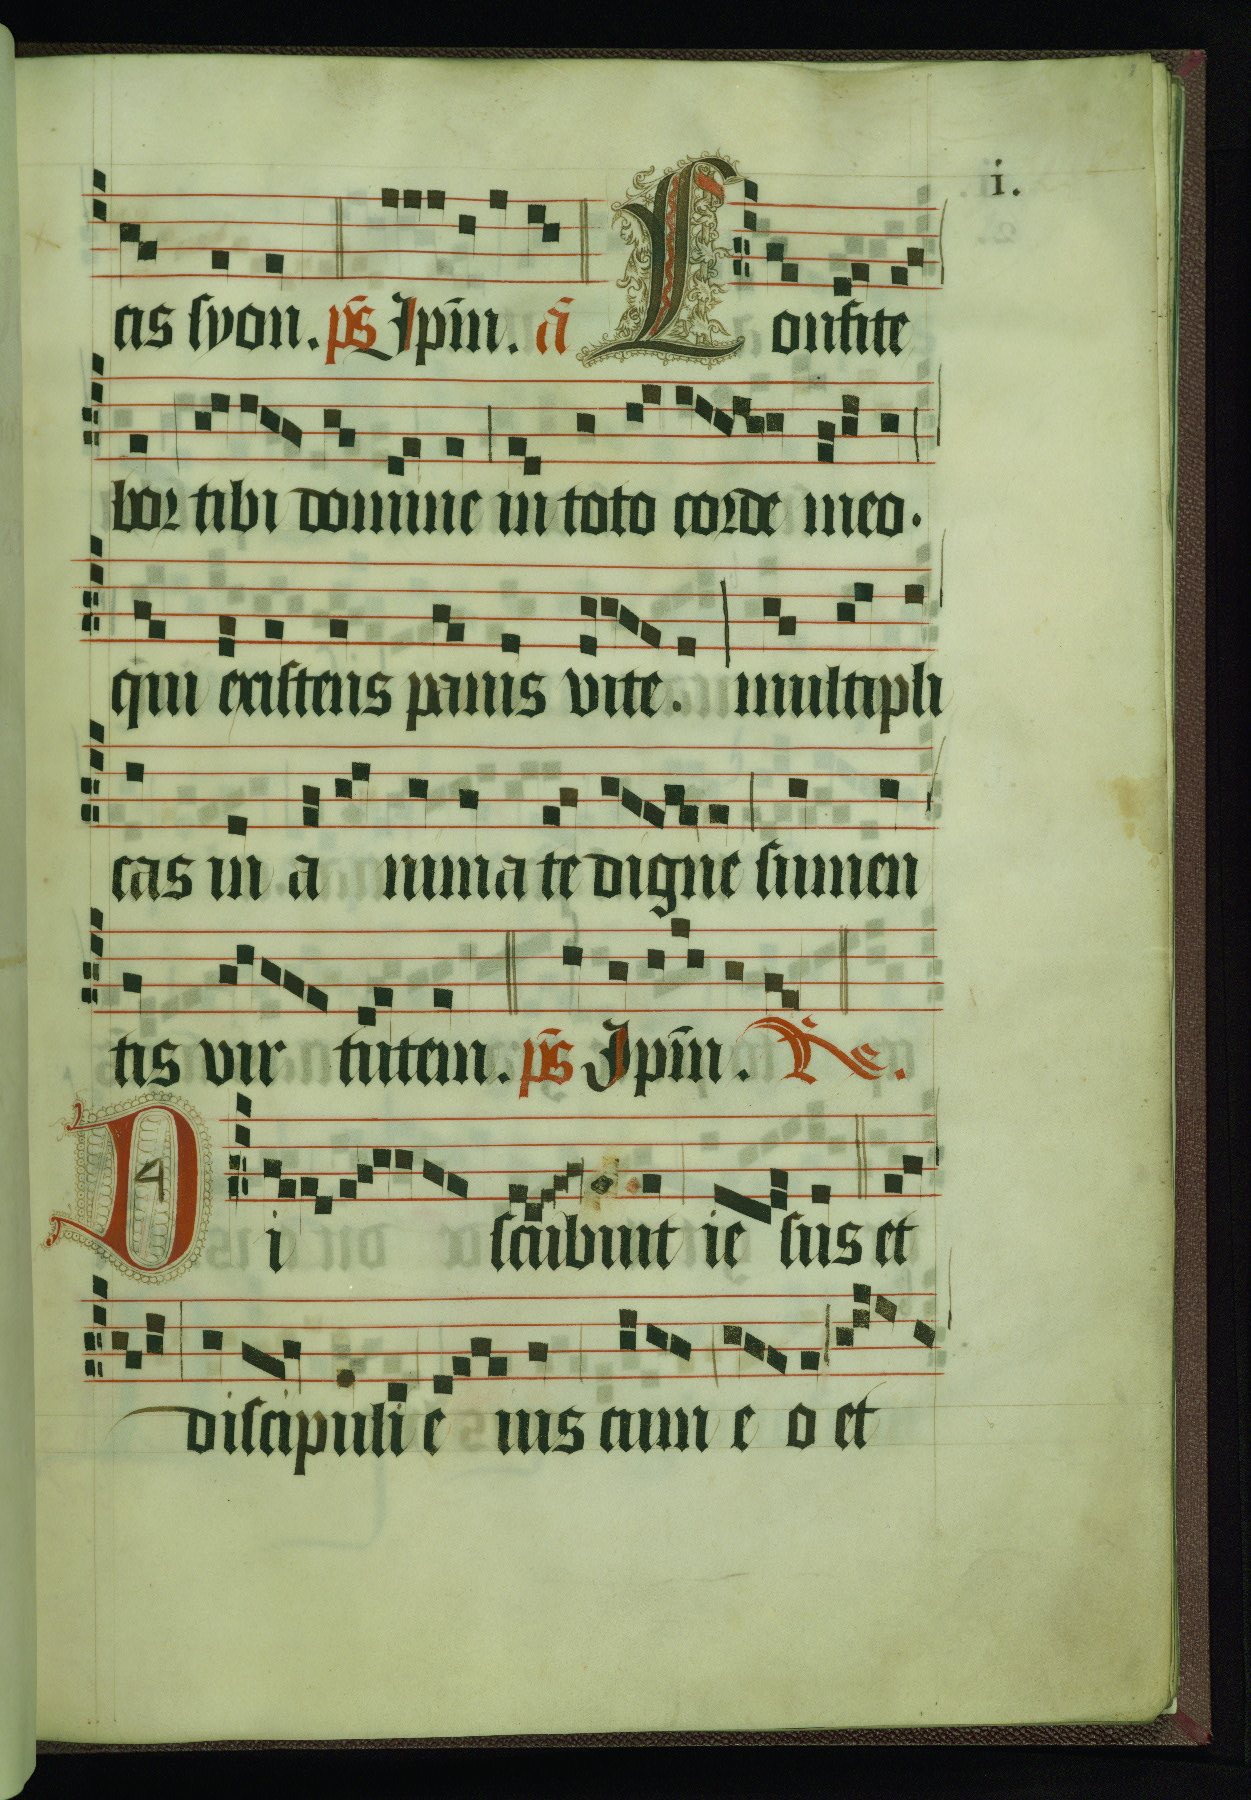 i.
cis syon. ps̄ Ip̄m. an̄ Confite
bor tibi domine in toto corde meo.
qui existens panis vite. multipli
cas in a nima te digne sumen
tis vir tutem. ps̄ Ip̄m. Re.
Di scubuit ie sus et
discipuli e ius cum e o et